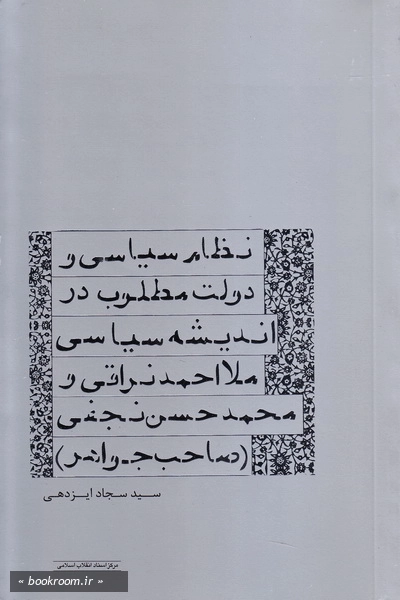 نظام سیاسی و
دولت مطلوب در
اندیشه سیاسی
ملا احمد نراقی و
محمد حسن نجفی
(صاحب جواهر)
سید سجاد ایزدهی
مرکز اسناد انقلاب اسلامی
« bookroom.ir »